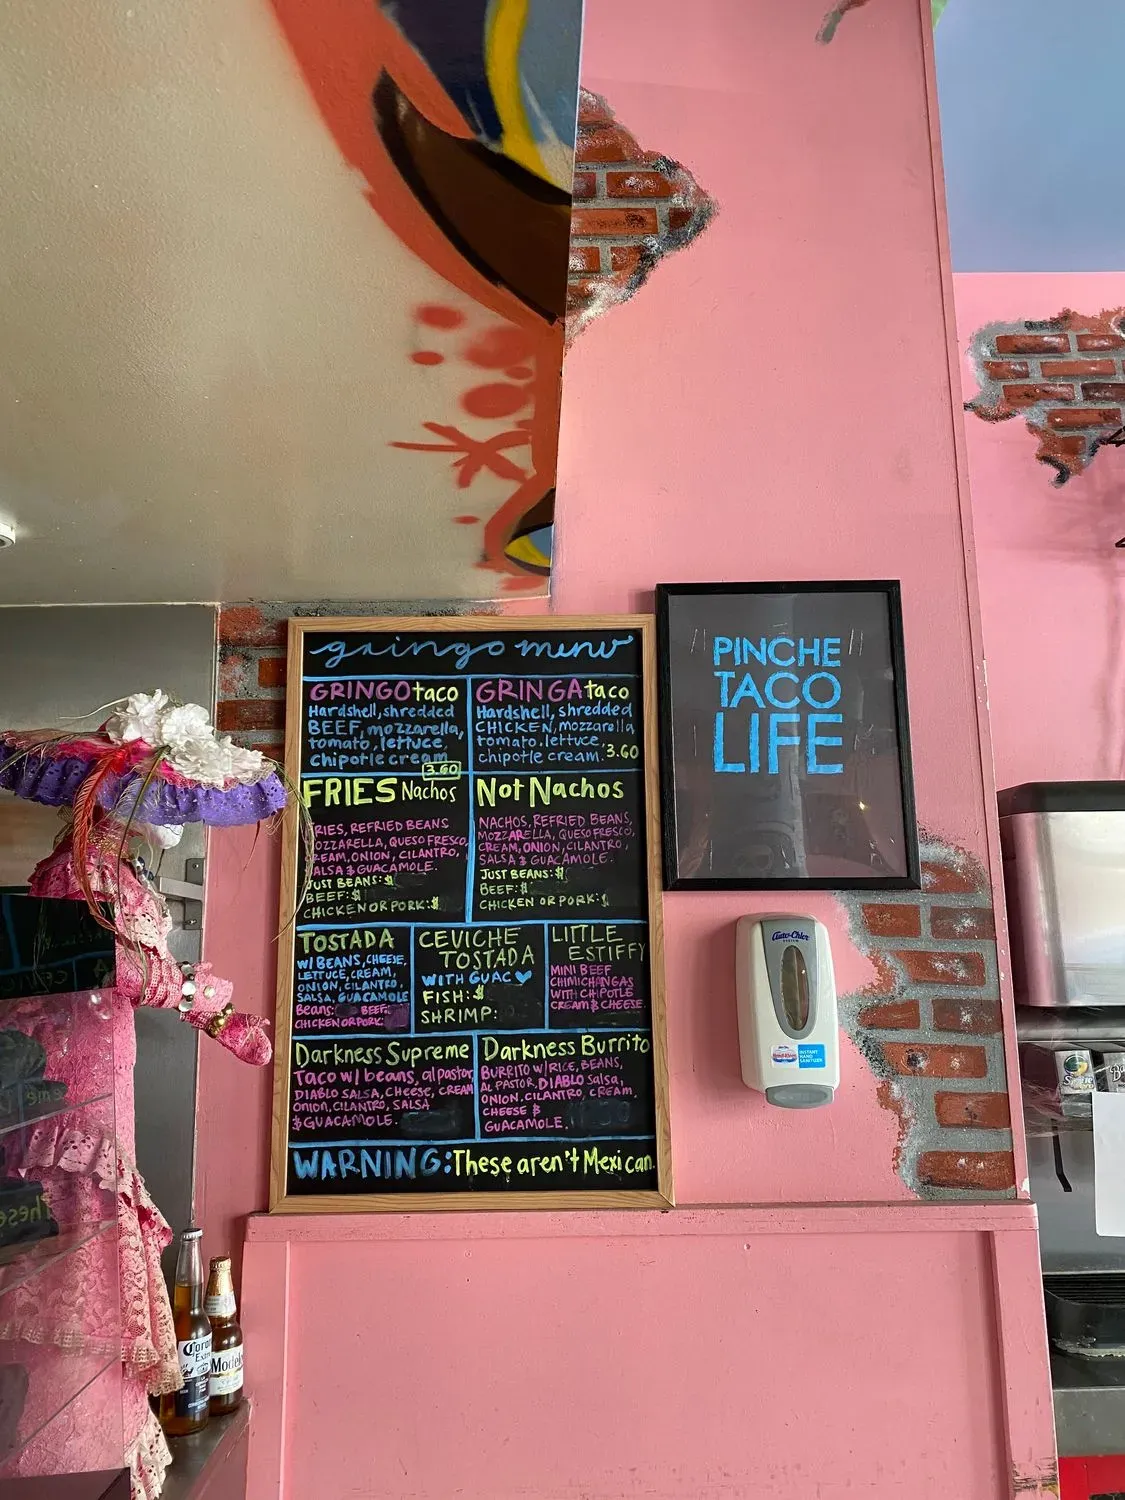 gringo menu
GRINGO taco
Hardshell, shredded
BEEF, mozzarella,
tomato, lettuce,
chipotle cream
3.60
GRINGA taco
Hardshell, shredded
CHICKEN, mozzarella
tomato, lettuce,
chipotle cream. 3.60
FRIES Nachos
FRIES, REFRIED BEANS
MOZZARELLA, QUESO FRESCO,
CREAM, ONION, CILANTRO,
SALSA & GUACAMOLE.
JUST BEANS: $
BEEF: $
CHICKEN OR PORK: $
Not Nachos
NACHOS, REFRIED BEANS,
MOZZARELLA, QUESO FRESCO,
CREAM, ONION, CILANTRO,
SALSA & GUACAMOLE.
JUST BEANS: $
BEEF: $
CHICKEN OR PORK: $
TOSTADA
W/ BEANS, CHEESE,
LETTUCE, CREAM,
ONION, CILANTRO,
SALSA, GUACAMOLE
Beans: BEEF:
CHICKEN OR PORK:
CEVICHE
TOSTADA
WITH GUAC
FISH: $
SHRIMP:
LITTLE
ESTIFFY
MINI BEEF
CHIMICHANGAS
WITH CHIPOTLE
CREAM & CHEESE.
Darkness Supreme
Taco w/ beans, al pastor,
DIABLO SALSA, CHEESE, CREAM
ONION, CILANTRO, SALSA
& GUACAMOLE.
Darkness Burrito
BURRITO W/ RICE, BEANS,
AL PASTOR, DIABLO Salsa,
ONION, CILANTRO, CREAM,
CHEESE &
GUACAMOLE.
WARNING: These aren't Mexican.
"PINCHE"
TACO
LIFE
Auto-Chlor
SYSTEM
INSTANT
HAND
SANITIZER
Corona
Extra
Modelo